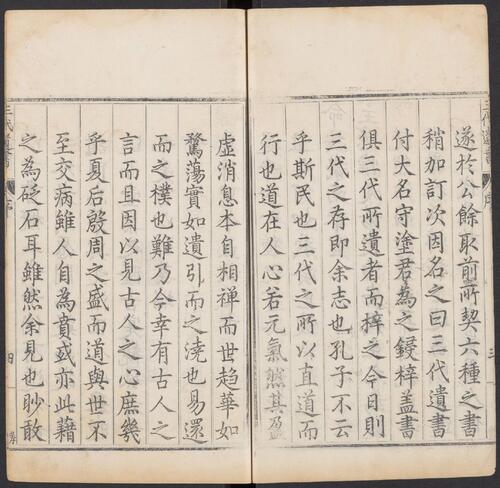 遂於公餘取前所契六種之書
稍加訂次因名之曰三代遺書
付大名守塗君為之鋟梓盖書
俱三代所遺者而梓之今日則
三代之存即余志也孔子不云
乎斯民也三代之所以直道而
行也道在人心若元氣然其盈
虛消息本自相禪而世趨華如
騖蕩實如遺引而之澆也易還
而之樸也難乃今幸有古人之
言而且因以見古人之心庶幾
乎夏后殷周之盛而道與世不
至交病雖人自為賁或亦此藉
之為砭石耳雖然余見也眇敢
三代遺書
序
三
三代遺書
序
四